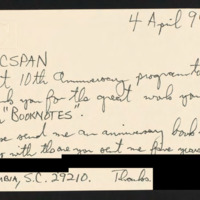 4 April 9
CSPAN
10th anniversary program
you for the great work you
"BOOKNOTES".
send me an anniversary book
with those you sent me five years
BIA, S.C. 29210. Thanks